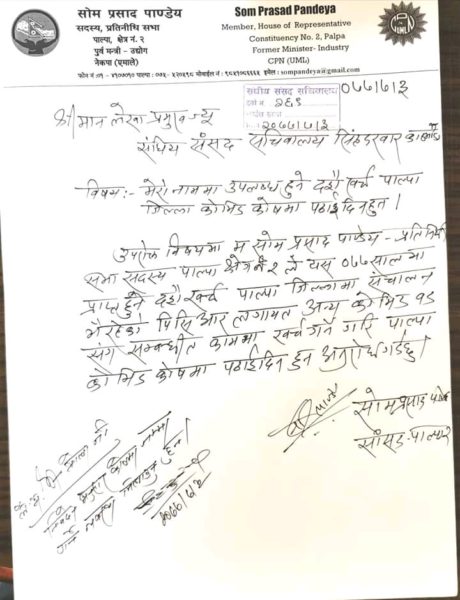 सोम प्रसाद पाण्डेय
सदस्य, प्रतिनिधि सभा
पाल्पा, क्षेत्र नं. २
पुर्व मन्त्री - उद्योग
नेकपा (एमाले)
Som Prasad Pandeya
Member, House of Representative
Constituency No. 2, Palpa
Former Minister- Industry
CPN (UML)
इमेल : sompandeya@gmail.com
संघीय संसद सचिवालय
२०७७/७/३
०७७/७/३
श्रीमान लेखा प्रमुख ज्यू
संघिय संसद सचिवालय सिंहदरवार
विषय:- मेरो नाममा उपलब्ध हुने दशैं खर्च पाल्पा
जिल्ला कोभिड कोषमा पठाई दिनहुन ।
उपरोक्त विषयमा म सोम प्रसाद पाण्डेय - प्रतिनिधी
सभा सदस्य पाल्पा क्षेत्र नं २ ले यस ०७७ सालमा
प्राप्त हुने दशैं खर्च पाल्पा जिल्लामा संचालन
भैरहेको पिसिआर लगायत अन्य कोभिड १९
संग सम्बन्धीत काममा खर्च गर्ने गरि पाल्पा
कोभिड कोषमा पठाई दिनु हुन अनुरोध गर्दछु ।
सोम प्रसाद पाण्डेय
सांसद-पाल्पा २
२०७७/७/३